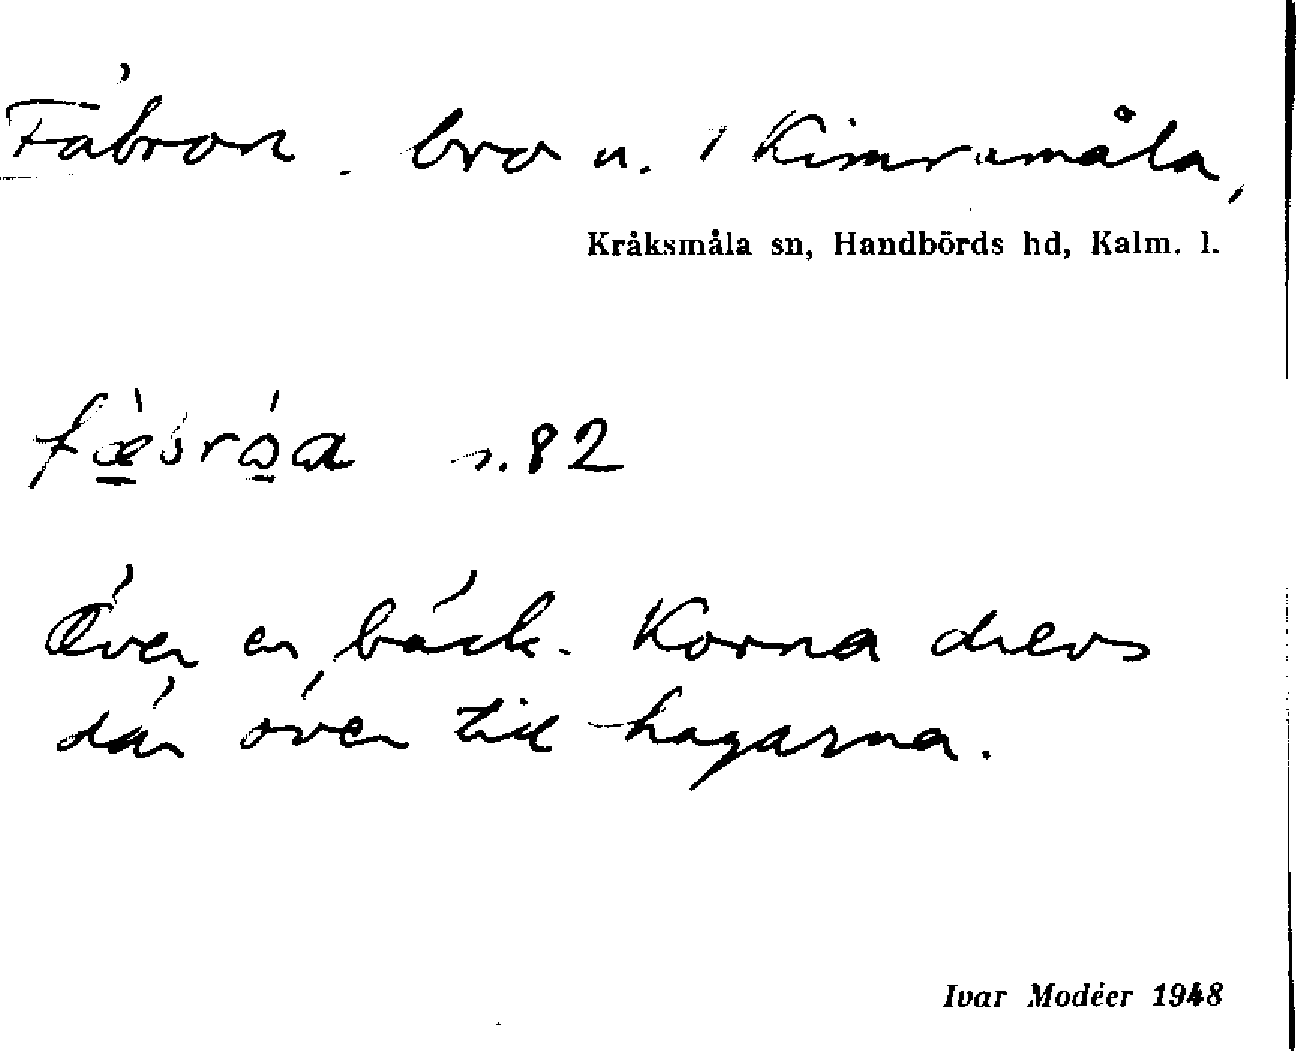 Fäbron. bro n. i Kimramåla,
Kråksmåla sn, Handbörds hd, Kalm. l.
s. 82
Över en bäck. Korna drevs
där över till hagarna.
Ivar Modéer 1948